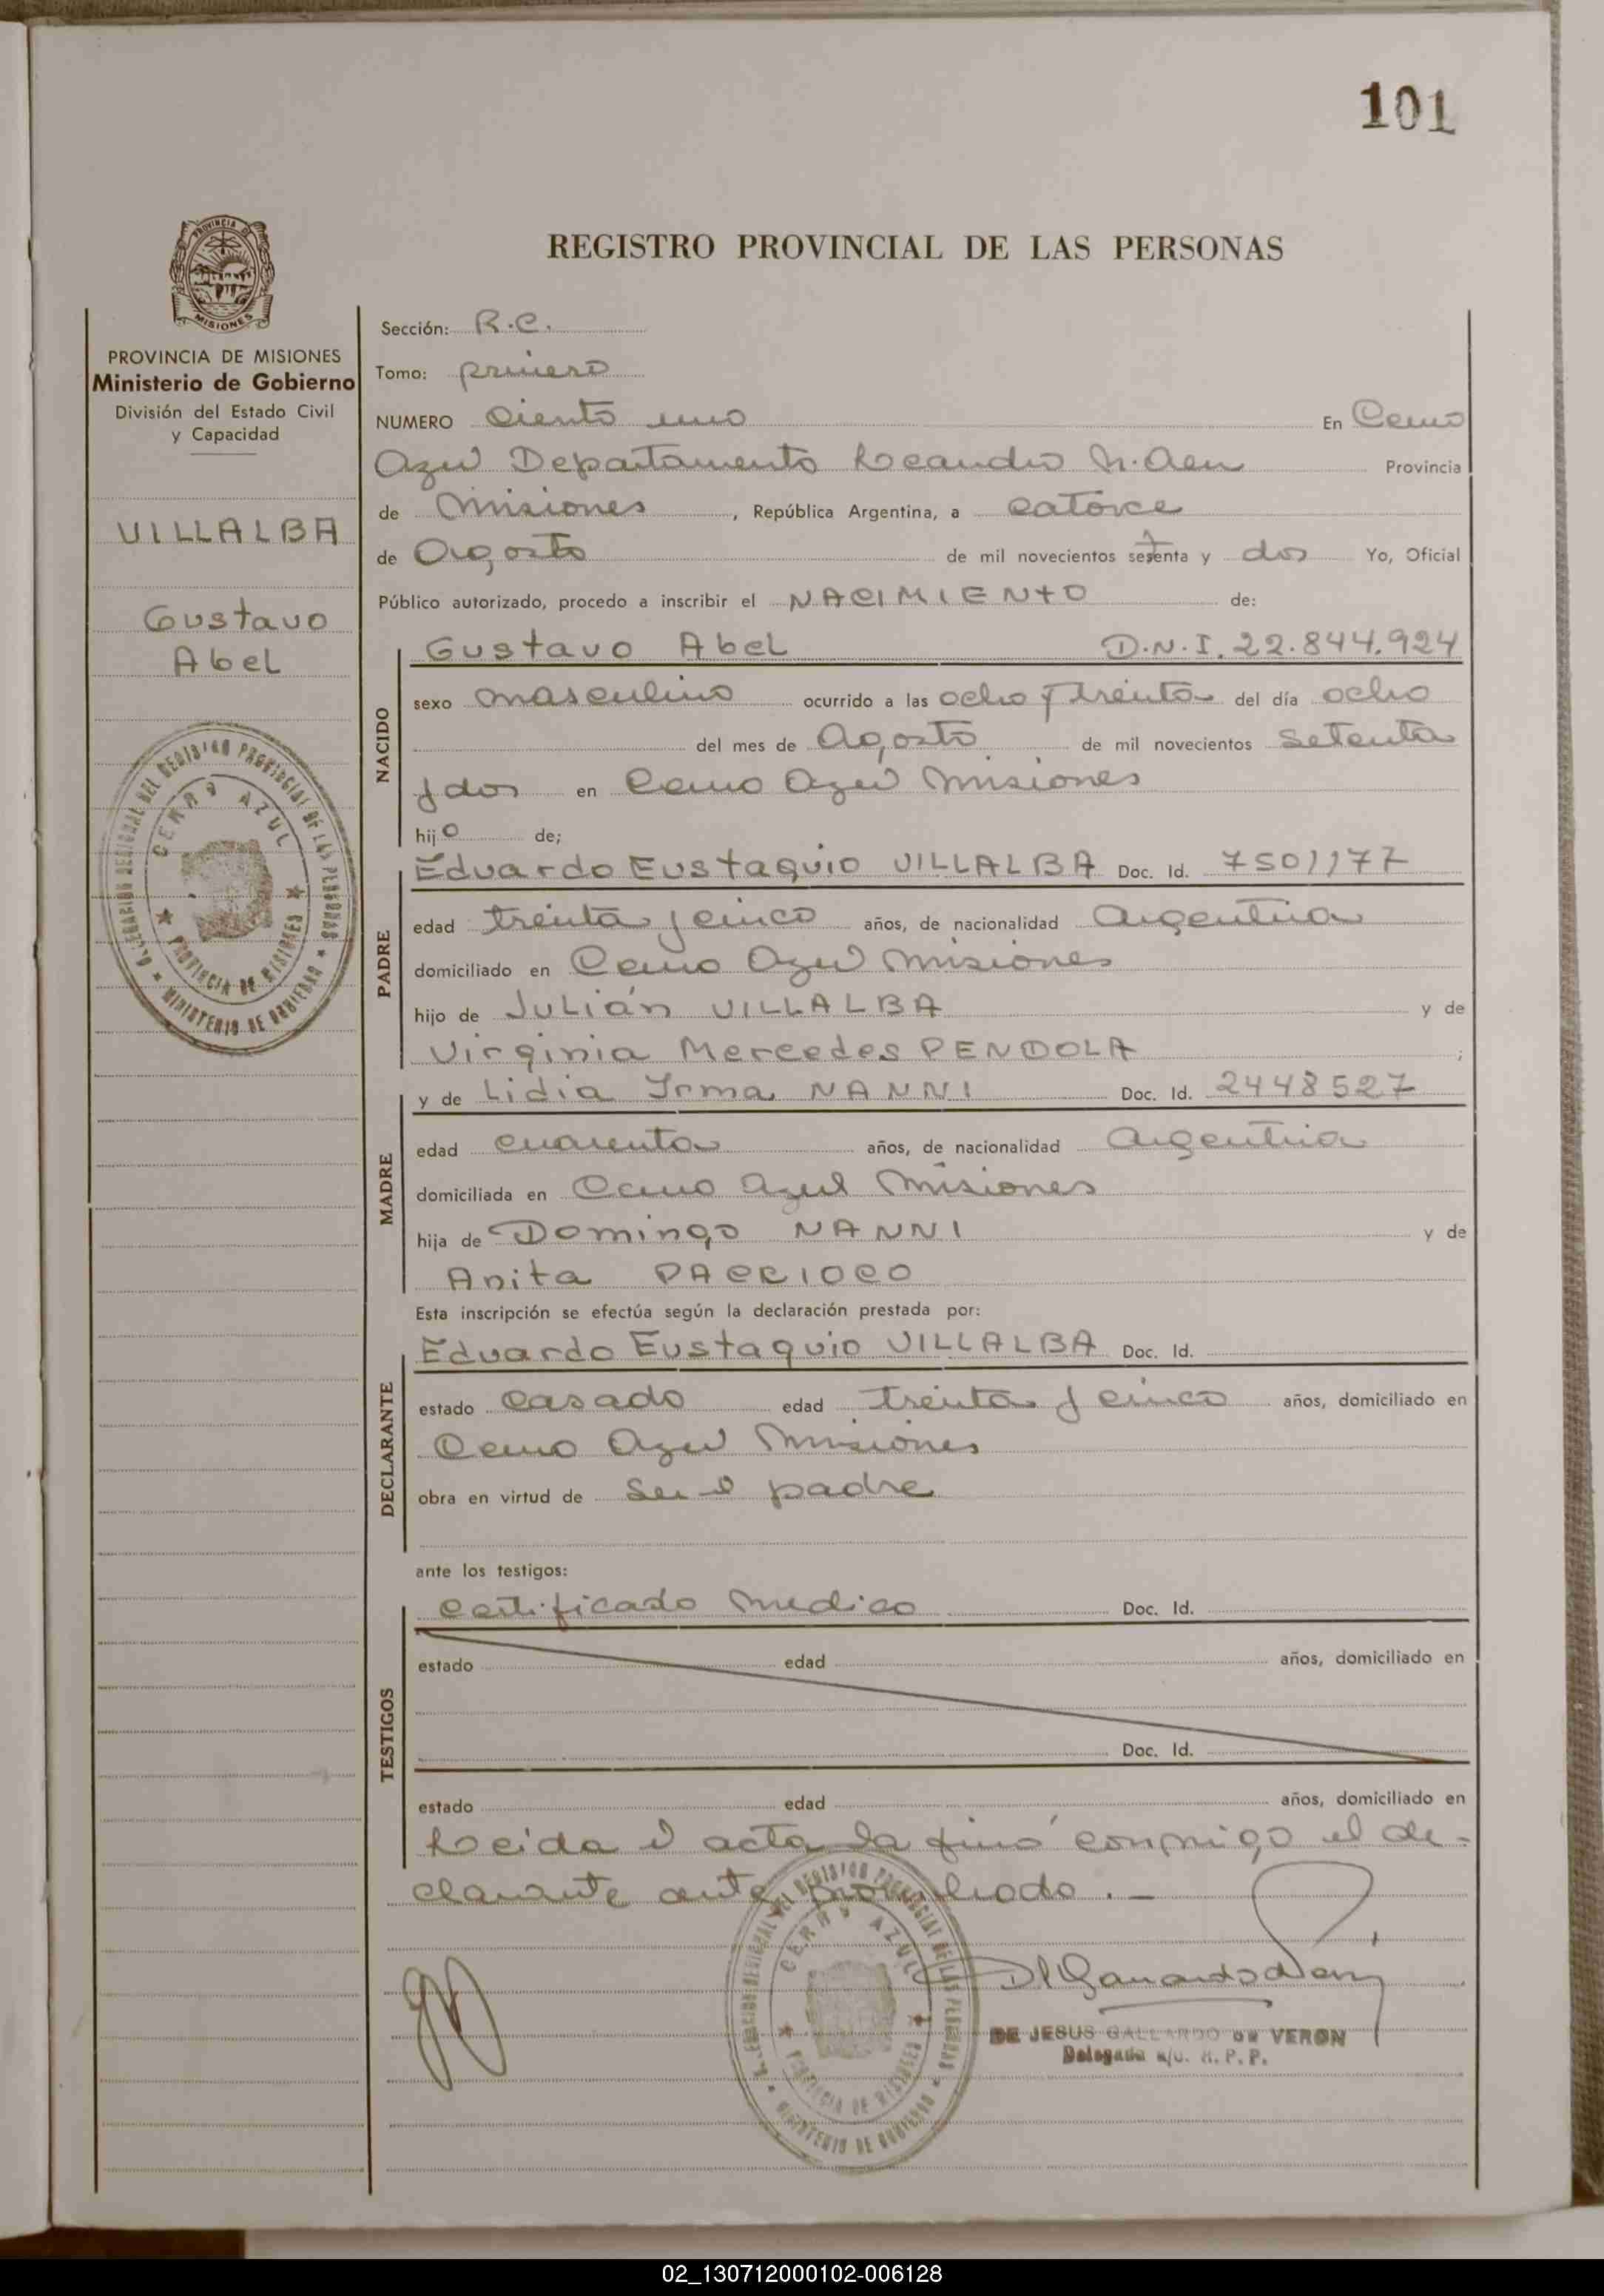 101
PROVINCIA DE
MISIONES
REGISTRO PROVINCIAL DE LAS PERSONAS
PROVINCIA DE MISIONES
Ministerio de Gobierno
División del Estado Civil
y Capacidad
VILLALBA
Gustavo
Abel
DELEGACION REGIONAL DEL REGISTRO PROVINCIAL DE LAS PERSONAS
CERRO AZUL
PROVINCIA DE MISIONES
MINISTERIO DE GOBIERNO
Sección: R.C.
Tomo: primero
NUMERO Ciento uno En Cerro
Azul Departamento Leandro N. Alem Provincia
de Misiones, República Argentina, a catorce
de Agosto de mil novecientos setenta y dos Yo, Oficial
Público autorizado, procedo a inscribir el NACIMIENTO de:
NACIDO
Gustavo Abel D.N.I. 22.844.924
sexo masculino ocurrido a las ocho y treinta del día ocho
del mes de Agosto de mil novecientos setenta
y dos en Cerro Azul Misiones
hijo de;
PADRE
Eduardo Eustaquio VILLALBA Doc. Id. 7501177
edad treinta y cinco años, de nacionalidad Argentina
domiciliado en Cerro Azul Misiones
hijo de Julián VILLALBA y de
Virginia Mercedes PENDOLA ;
MADRE
y de Lidia Irma NANNI Doc. Id. 2448527
edad cuarenta años, de nacionalidad Argentina
domiciliada en Cerro Azul Misiones
hija de Domingo NANNI y de
Anita PACCIOCO
Esta inscripción se efectúa según la declaración prestada por:
DECLARANTE
Eduardo Eustaquio VILLALBA Doc. Id.
estado Casado edad treinta y cinco años, domiciliado en
Cerro Azul Misiones
obra en virtud de ser el padre
ante los testigos:
TESTIGOS
Certificado Medico Doc. Id.
estado edad años, domiciliado en
Doc. Id.
estado edad años, domiciliado en
Leida el acta la firmó conmigo el de-
clarante ante
DELEGACION REGIONAL DEL REGISTRO PROVINCIAL DE LAS PERSONAS
CERRO AZUL
PROVINCIA DE MISIONES
MINISTERIO DE GOBIERNO
DE JESUS GALLARDO DE VERON
Delegada R.P.P.
02_130712000102-006128